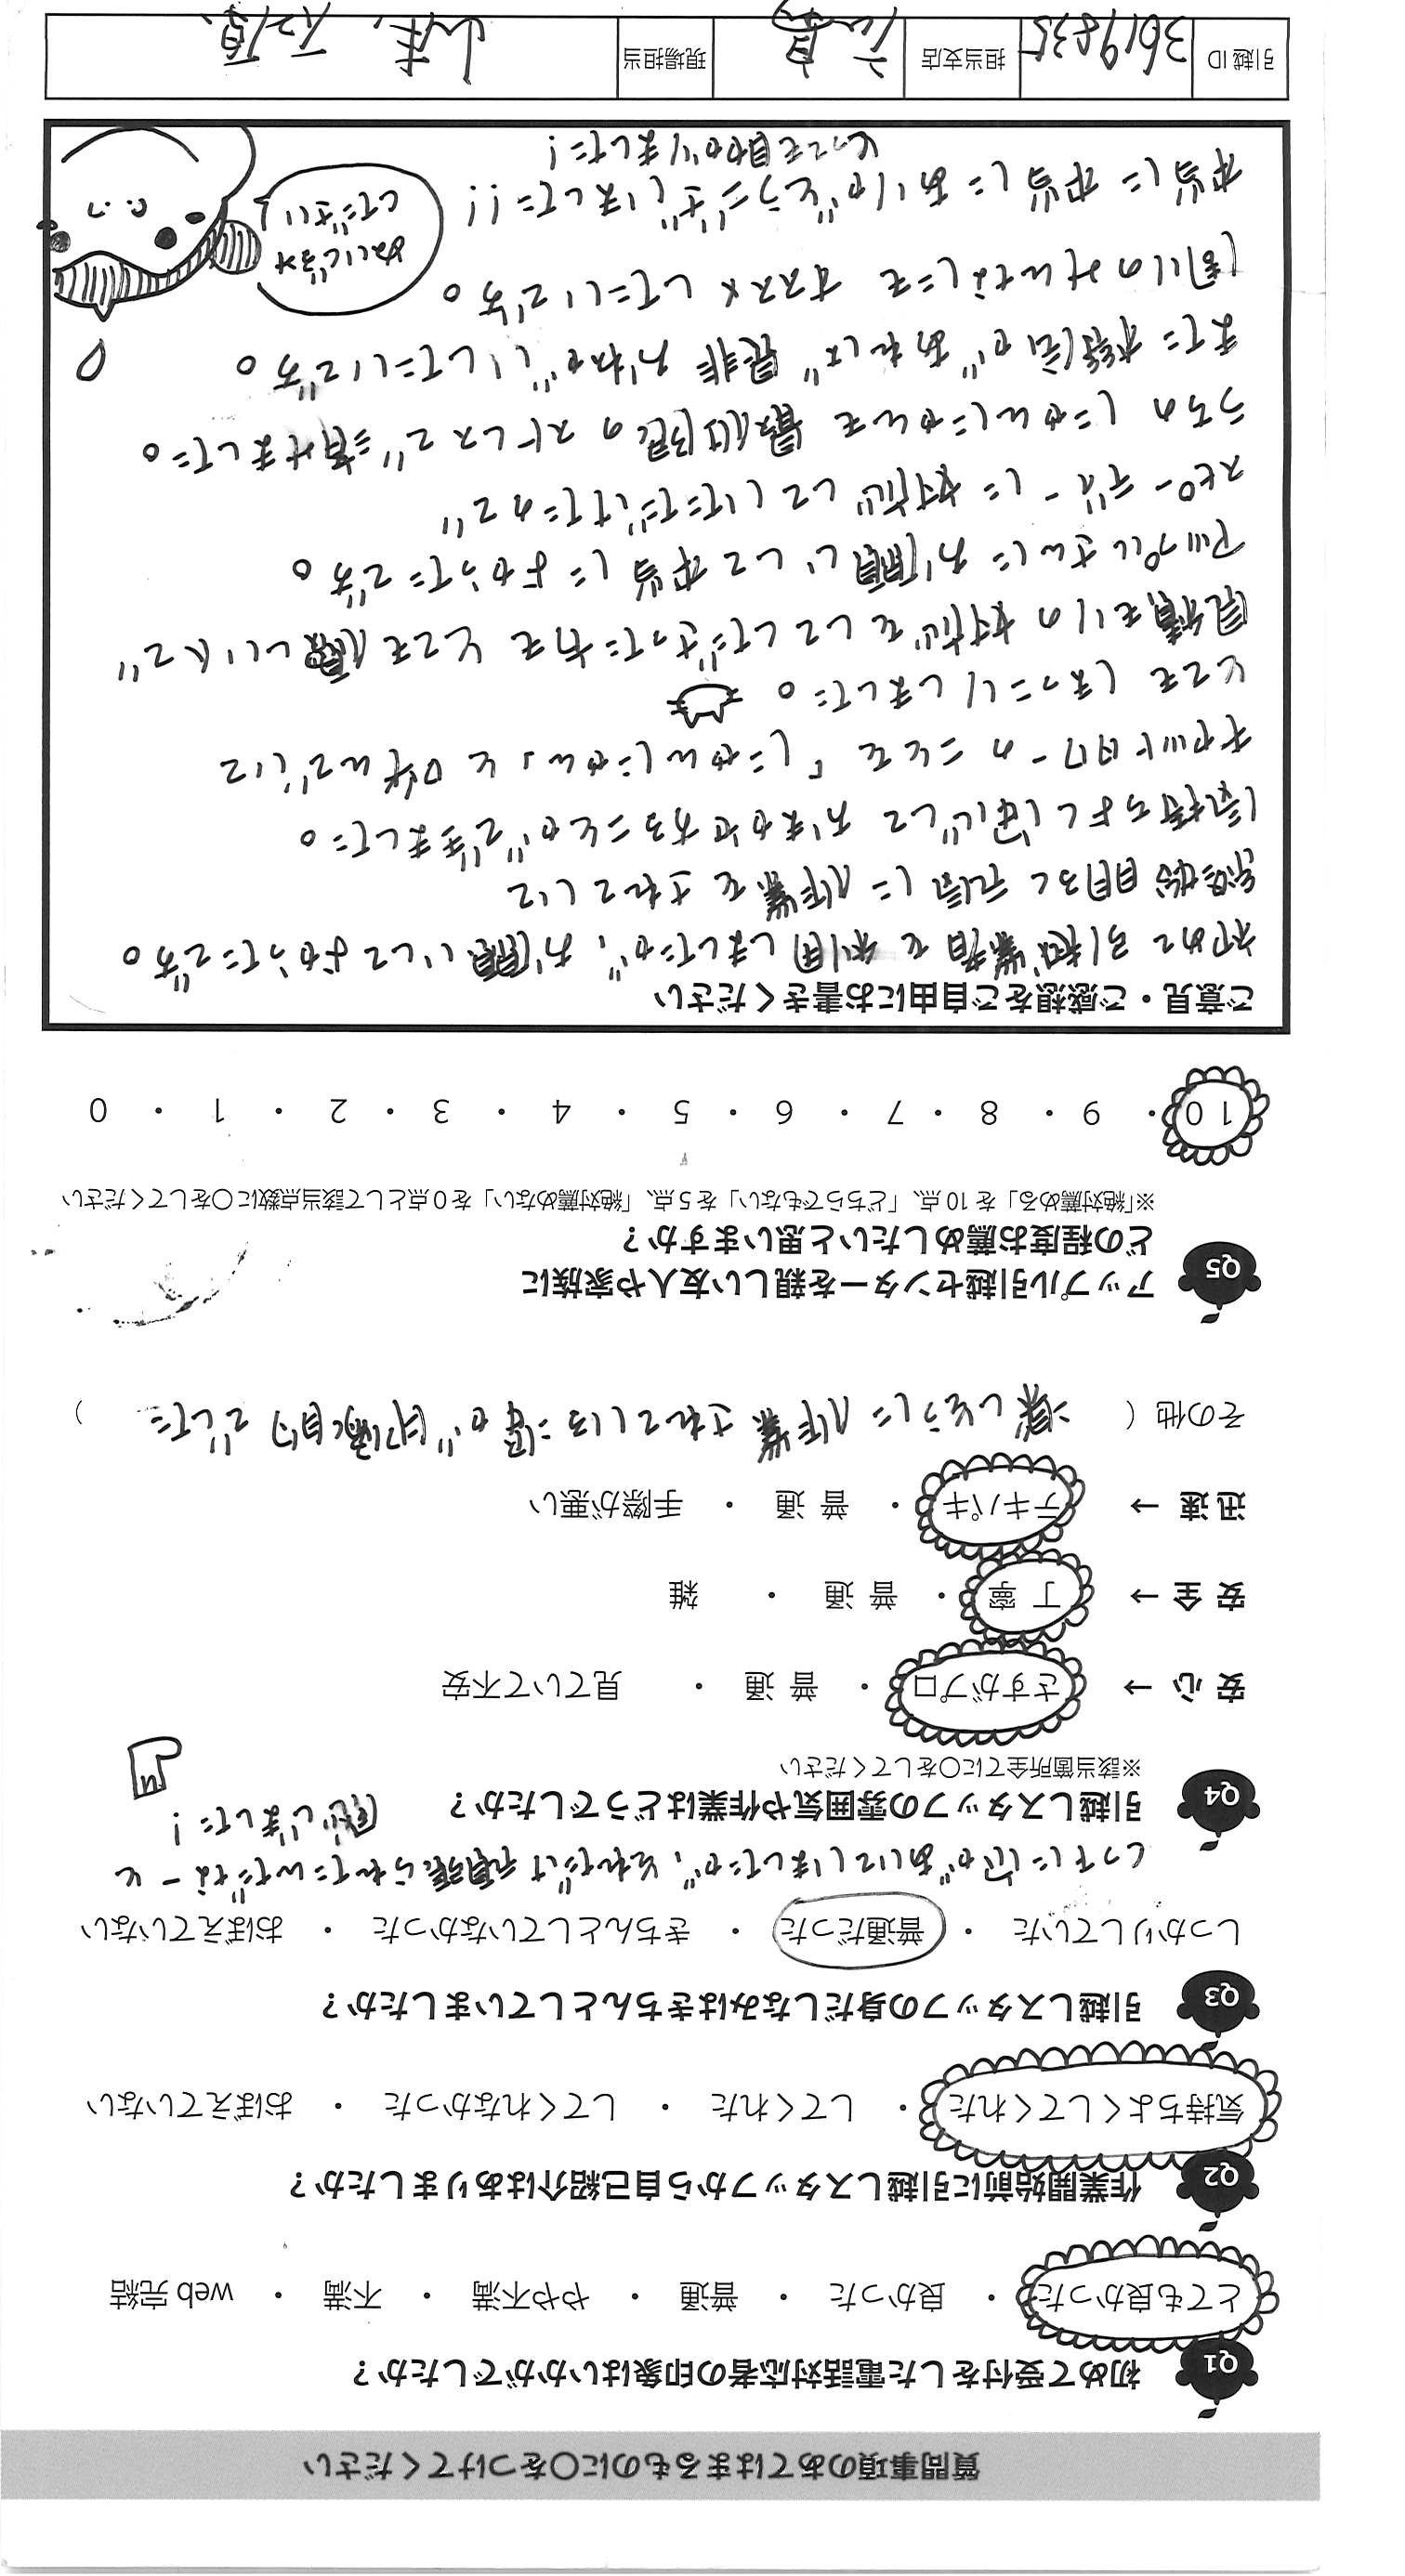 質問事項のあてはまるものに〇をつけてください
Q1 初めて受付をした電話対応者の印象はいかがでしたか？
とても良かった ・ 良かった ・ 普通 ・ やや不満 ・ 不満 ・ web 完結
Q2 作業開始前に引越しスタッフから自己紹介はありましたか？
気持ちよくしてくれた ・ してくれた ・ してくれなかった ・ おぼえていない
Q3 引越しスタッフの身だしなみはきちんとしていましたか？
しっかりしていた ・ 普通だった ・ きちんとしていなかった ・ おぼえていない
くつ下に穴があいていましたが、それだけ頑張られたんだなーと
感じました！
Q4 引越しスタッフの雰囲気や作業はどうでしたか？
※該当箇所全てに〇をしてください
安 心 → さすがプロ ・ 普 通 ・ 見ていて不安
安 全 → 丁 寧 ・ 普 通 ・ 雑
迅 速 → テキパキ ・ 普 通 ・ 手際が悪い
その他（ 楽しそうに作業されている姿が印象的でした ）
Q5 アップル引越センターを親しい友人や家族に
どの程度お薦めしたいと思いますか？
※「絶対薦める」を 10 点、「どちらでもない」を 5 点、「絶対薦めない」を 0 点として該当点数に〇をしてください
10 ・ 9 ・ 8 ・ 7 ・ 6 ・ 5 ・ 4 ・ 3 ・ 2 ・ 1 ・ 0
ご意見・ご感想をご自由にお書きください
初めて引越業者を利用しましたが、お願いしてよかったです。
終始明るく元気に作業をされていて
気持ちよく安心しておまかせすることができました。
キャットタワーのことを「にゃんにゃん」と呼んでいて
とてもほっこりしました。
見積もりの対応をしてくださった方もとても優しい人で
アップルさんにお願いして本当によかったです。
スピーディーに対応していただけたので
うちのにゃんにゃんも最低限のストレスで済みました。
また機会があれば是非おねがいしたいです。
周りのみんなにもオススメしたいです。
本当に本当にありがとうございました！！
とっても助かりました！
ぬいじるみ
してださい
引越 ID 3619835 担当支店 現場担当